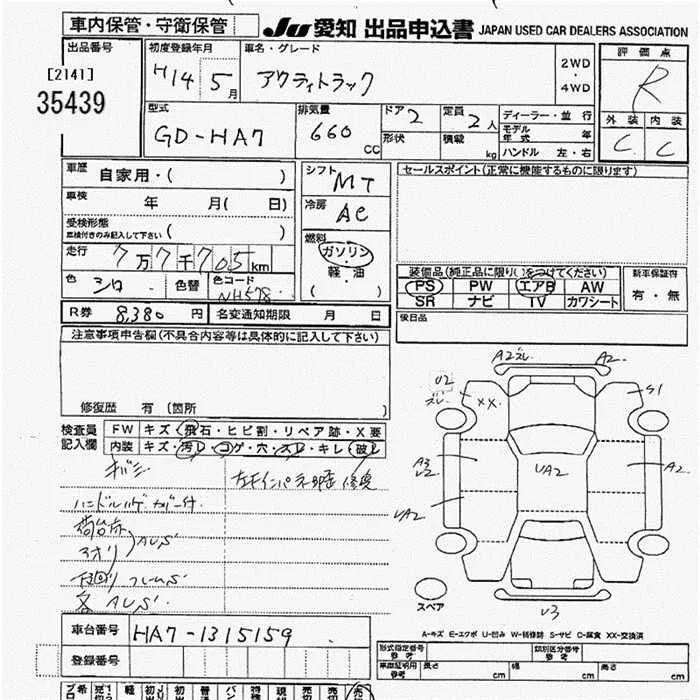 車内保管・守衛保管
JU 愛知 出品申込書 JAPAN USED CAR DEALERS ASSOCIATION
出品番号
[2141]
35439
初度登録年月
H14 5月
車名・グレード
アクティトラック
2WD
・
4WD
評価点
R
型式
GD-HA7
排気量
660 CC
ドア 2
形状
定員 2人
積載 kg
ディーラー・並行
モデル年式 年
ハンドル 左・右
外装 内装
C C
車歴 自家用・( )
車検 年 月( 日)
受検形態
車検付きのみ記入して下さい ( )
走行 7万7千705km
色 シロ 色替 色コード NH578
シフト MT
冷房 AC
燃料
ガソリン
・
軽・油
( )
セールスポイント(正常に機能するものに限ります)
装備品(純正品に限り○をつけてください)
PS PW エアB AW
SR ナビ TV カワシート
新車保証符
有・無
R券 8,380円 名変通知期限 月 日
後日品
注意事項申告欄(不具合内容等は具体的に記入して下さい)
修復歴 有 (箇所 )
検査員
記入欄
FW キズ・飛石・ヒビ割・リペア跡・X要
内装 キズ・汚レ・コゲ・穴・スレ・キレ・破レ
ハンドル
荷台
アオリ AUS
下回りフレームS
各AUS
A2ズレ A2
U2
ズレ XX S1
A3
U2
UA2
UA2
A2
U3
スペア
A-キズ E-エクボ U-凹み W-補修跡 S-サビ C-腐食 XX-交換済
車台番号 HA7-1315159
登録番号
形式指定番号
参考
類別区分番号
参考
車庫証明用
参考
長さ cm 幅 cm 高さ cm